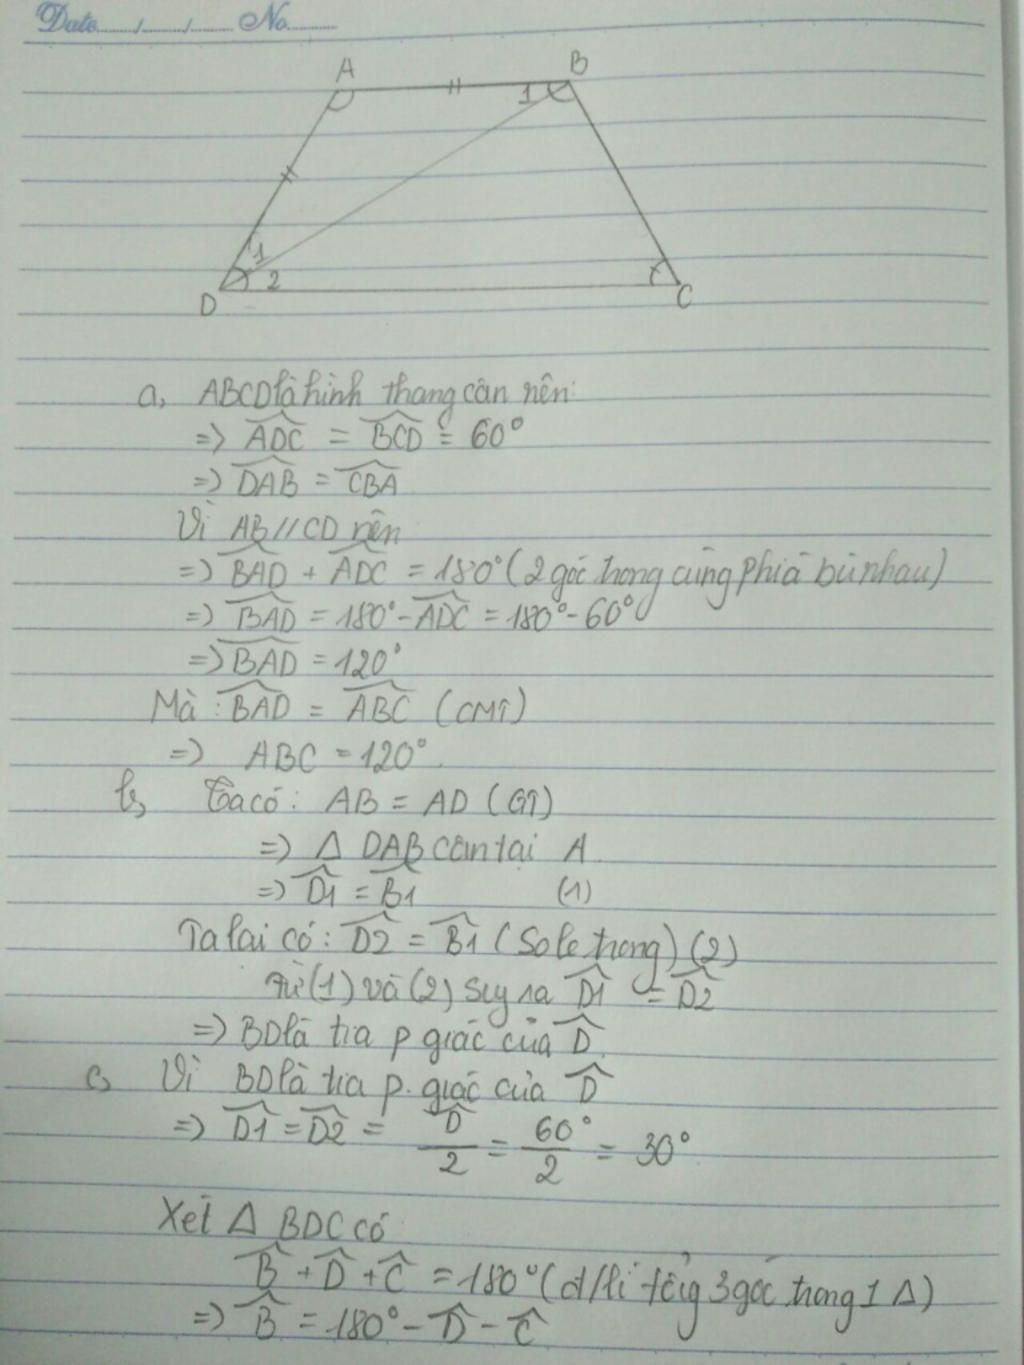 Date...../...../..... No..........
A
B
1
1
2
D
C
a, ABCD là hình thang cân nên:
=> \widehat{ADC} = \widehat{BCD} = 60°
=> \widehat{DAB} = \widehat{CBA}
Vì AB//CD nên
=> \widehat{BAD} + \widehat{ADC} = 180° (2 góc trong cùng phía bù nhau)
=> \widehat{BAD} = 180° - \widehat{ADC} = 180° - 60°
=> \widehat{BAD} = 120°
Mà : \widehat{BAD} = \widehat{ABC} (CMT)
=> ABC = 120°.
b, Ta có : AB = AD (GT)
=> Δ DAB cân tại A.
=> \widehat{D1} = \widehat{B1} (1)
Ta lại có : \widehat{D2} = \widehat{B1} (Sole trong) (2)
Từ (1) và (2) suy ra \widehat{D1} = \widehat{D2}
=> BD là tia p giác của \widehat{D}.
c, Vì BD là tia p. giác của \widehat{D}
=> \widehat{D1} = \widehat{D2} = \frac{\widehat{D}}{2} = \frac{60°}{2} = 30°
Xét Δ BDC có
\widehat{B} + \widehat{D} + \widehat{C} = 180° (đ/lí tổng 3 góc trong 1 Δ)
=> \widehat{B} = 180° - \widehat{D} - \widehat{C}